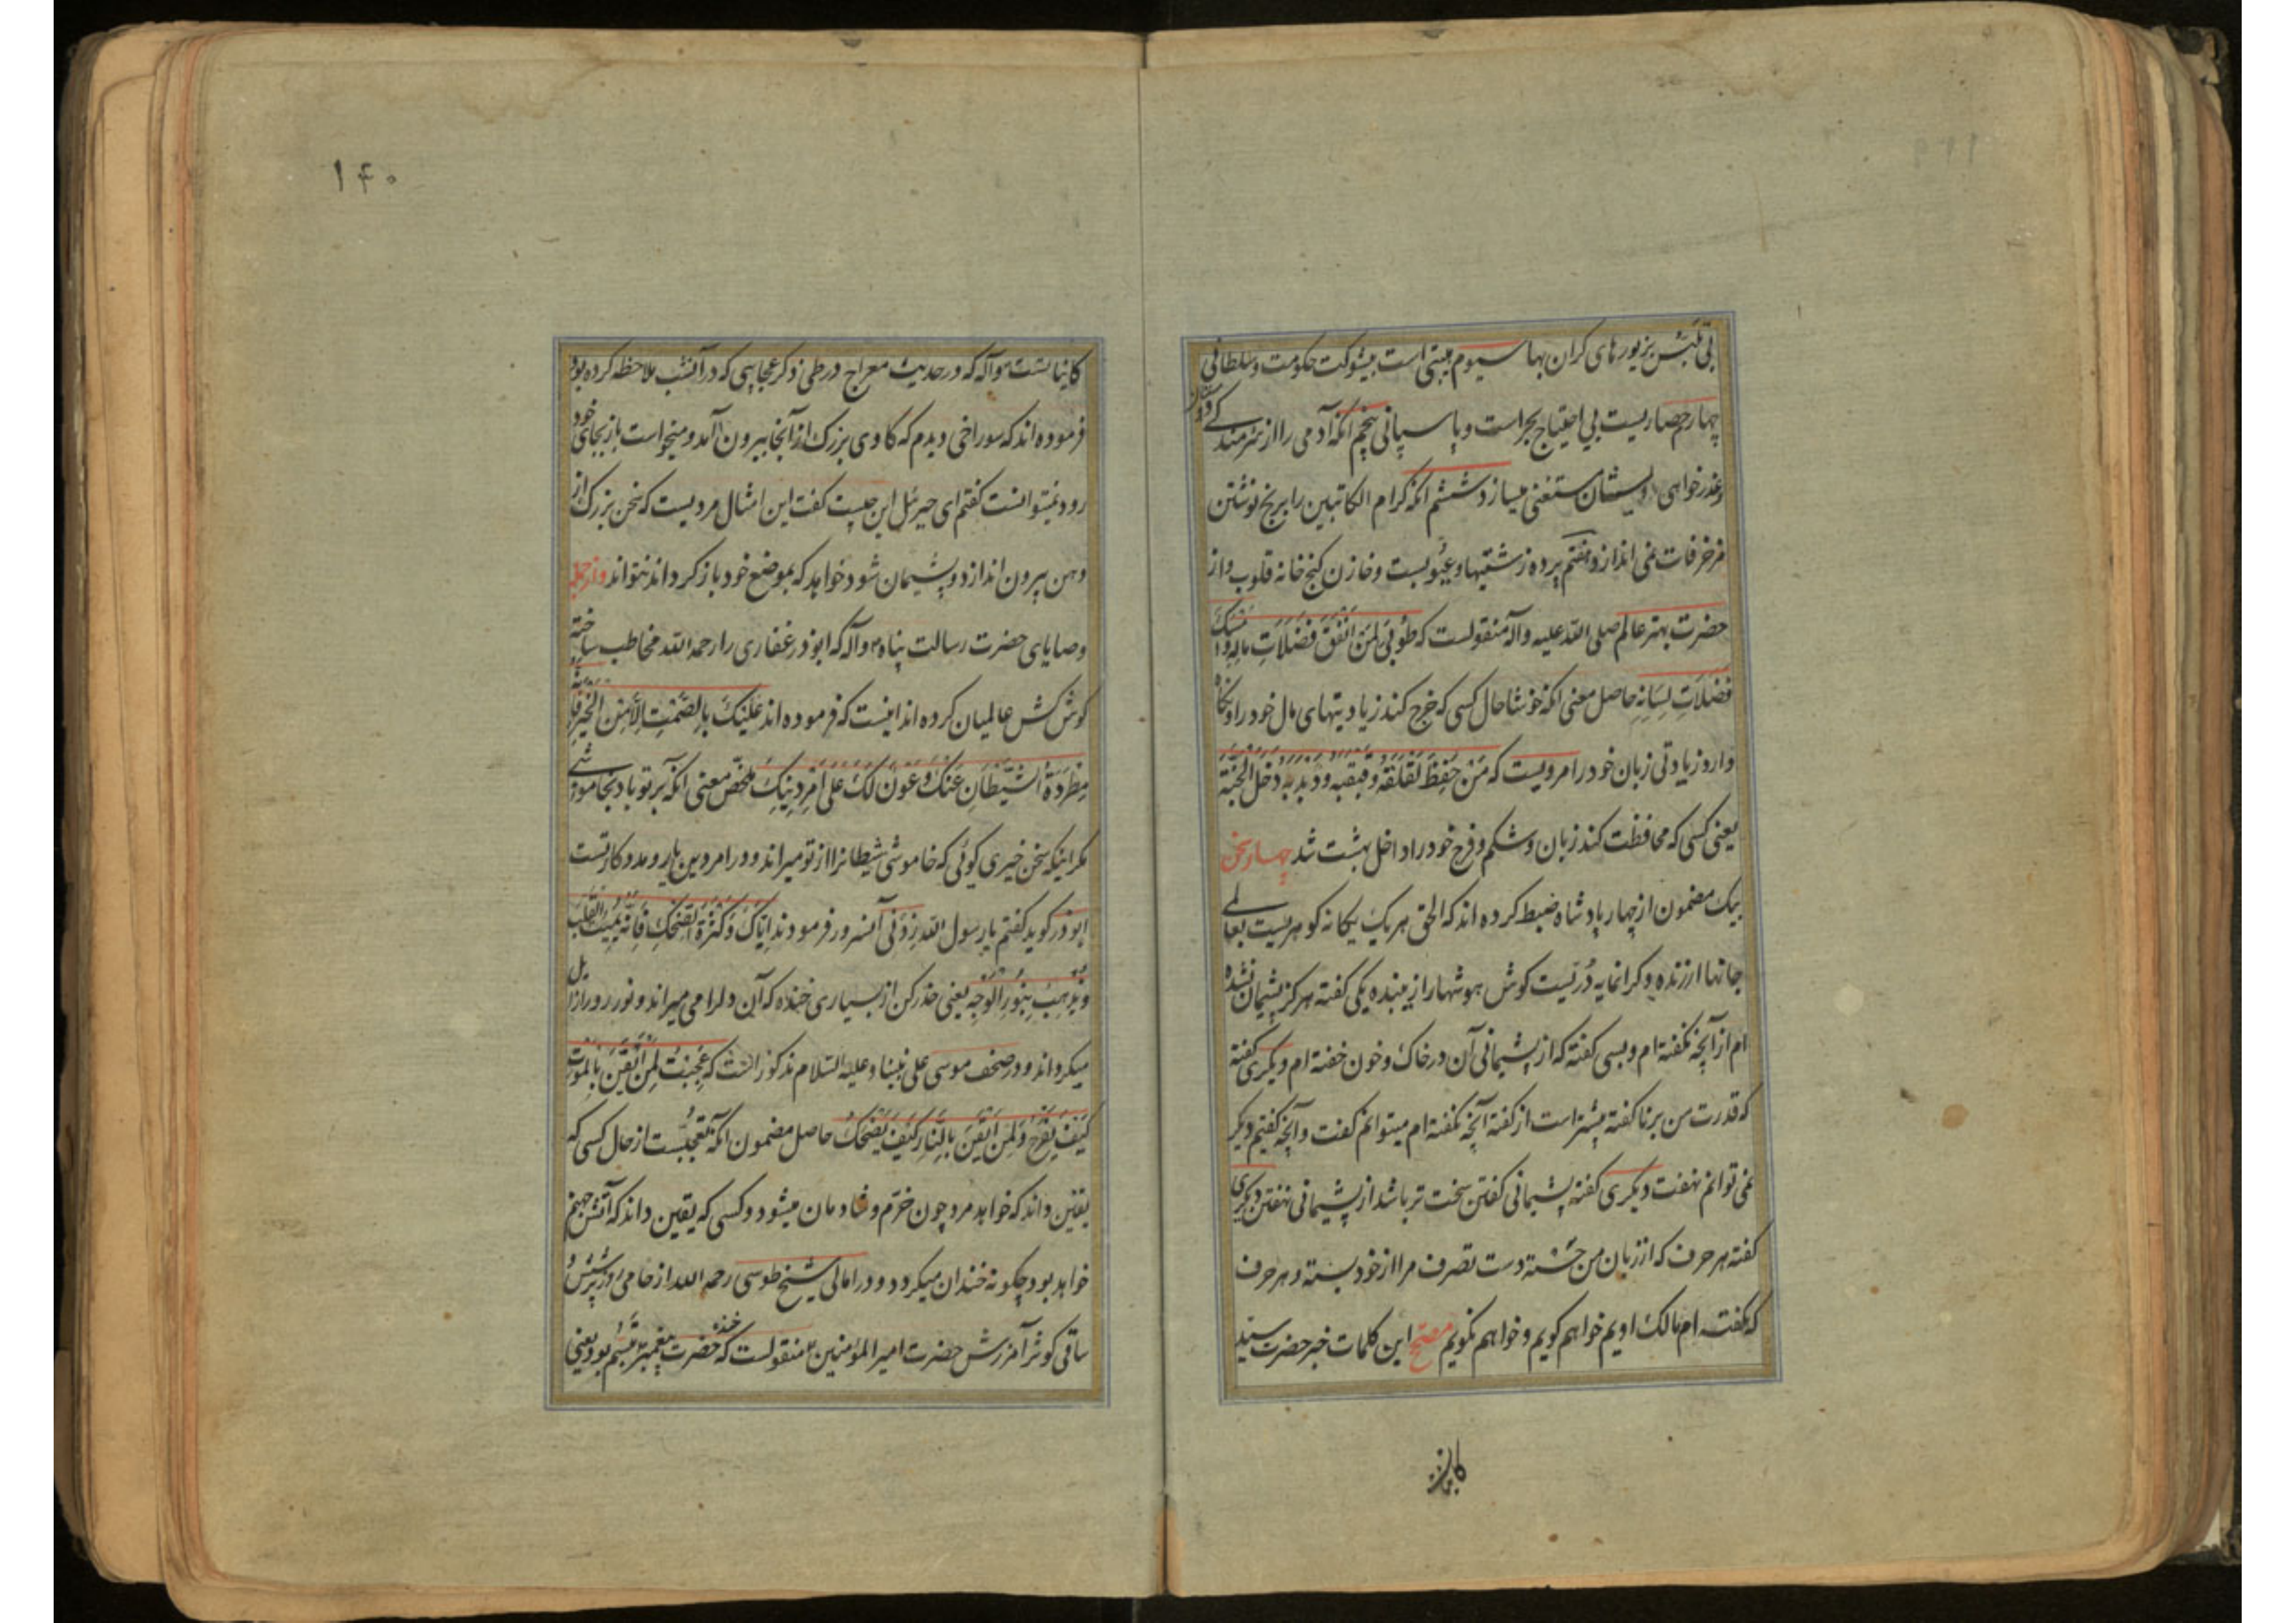 بی تلبس بزیورهای کران بها سیوم هیبتی است بیشوکت حکومت و سلطانی
چهارم حصاریست بی احتیاج بحراست و پاسبانی پنجم آنکه آدمی را از شرمندکی
و عذرخواهی ایشان مستغنی میسازد ششم آنکه کرام الکاتبین را برنج نوشتن
مزخرفات نمی اندازد هفتم پرده زشتیها و عیوبست و خازن کنج خانه قلوب و از
حضرت بهتر عالم صلی الله علیه وآله منقولست که طُوبی لِمَن اَنفَقَ فَضَلَاتِ مالِهِ و اَمسَکَ
فَضَلَاتِ لِسَانِهِ حاصل معنی آنکه خوشا حال کسی که خرج کند زیادتیهای مال خود را و نکاه
دارد زیادتی زبان خود را مرویست که مَن حَفِظَ لَقلَقَهُ وَقَبقَبَهُ وَذَبذَبَهُ دَخَلَ الجَنَّةَ
یعنی کسی که محافظت کند زبان و شکم و فرج خود را داخل بهشت شد چهار سخن
بیک مضمون از چهار پادشاه ضبط کرده اند که الحق هر یک یکانه کوهریست بعالی
جانها ارزنده و کرانمایه دُرّیست کوش هوشها را زیبنده یکی کفته هرکز پشیمان نشده
ام از آنچه نکفته ام و بسی کفته که از پشیمانی آن در خاک و خون خفته ام دیکری کفته
که قدرت من بر ناکفته بیشتر است از کفته آنچه نکفته ام میتوانم کفت و آنچه کفتم دیکر
نمی توانم نهفت دیکری کفته پشیمانی کفتن سخت تر باشد از پشیمانی نهفتن دیکری
کفته هر حرف که از زبان من جسته دست تصرف مرا از خود بسته و هر حرف
که نکفته ام مالک اویم خواهم کویم و خواهم نکویم مصحح این کلمات خبر حضرت سید
کاینات
۱۴۰
کاینات است وآله که در حدیث معراج در طی ذکر عجایبی که در آنشب ملاحظه کرده بود
فرموده اند که سوراخی دیدم که کاوی بزرک از آنجا بیرون آمد و میخواست باز بجای خود
رود نمیتوانست کفتم ای جبرئیل این چیست کفت این امثال مردیست که سخن بزرک از
دهن بیرون اندازد و پشیمان شود خواهد که بموضع خود باز کرداند نتواند و از جمله
وصایای حضرت رسالت پناه ۴ وآله که ابوذر غفاری را رحمه الله مخاطب ساخته
کوش کش عالمیان کرده اند اینست که فرموده اند عَلَیکَ بِالصَّمتِ اِلّا مِنَ الخَیرِ فَاِنَّهُ
مِطرَدَةُ الشَّیطَانِ عَنکَ وَ عَونٌ لَکَ عَلَی اَمرِ دِینِکَ ملخّص معنی آنکه بر تو باد بخاموشی
مکر اینکه سخن خیری کوئی که خاموشی شیطانرا از تو میراند و در امر دین یار و مددکار تست
ابوذر کوید کفتم یا رسول الله زِدنی آنسرور فرمودند اِیّاکَ وَ کَثرَةَ الضِّحکِ فَاِنَّهُ یُمِیتُ القَلبَ
وَ یُذهِبُ بِنُورِ الوَجهِ یعنی حذر کن از بسیاری خنده که آن دلرا می میراند و نور رو را زایل
میکرداند و در صُحُف موسی علی نبینا و علیه السلام مذکور است که عَجِبتُ لِمَن اَیقَنَ بِالمَوتِ
کَیفَ یَفرَحُ وَ لِمَن اَیقَنَ بِالنّارِ کَیفَ یَضحَکُ حاصل مضمون آنکه تعجبست از حال کسی که
یقین داند که خواهد مرد چون خرّم و شادمان میشود و کسی که یقین داند که آتش جهنم
خواهد بود چکونه خندان میکردد و در امالی شیخ طوسی رحمه الله از حامی روز پرسش و
ساقی کوثر آمرزش حضرت امیر المؤمنین ۴ منقولست که خنده حضرت پیغمبر ۴ تبسّم بود یعنی